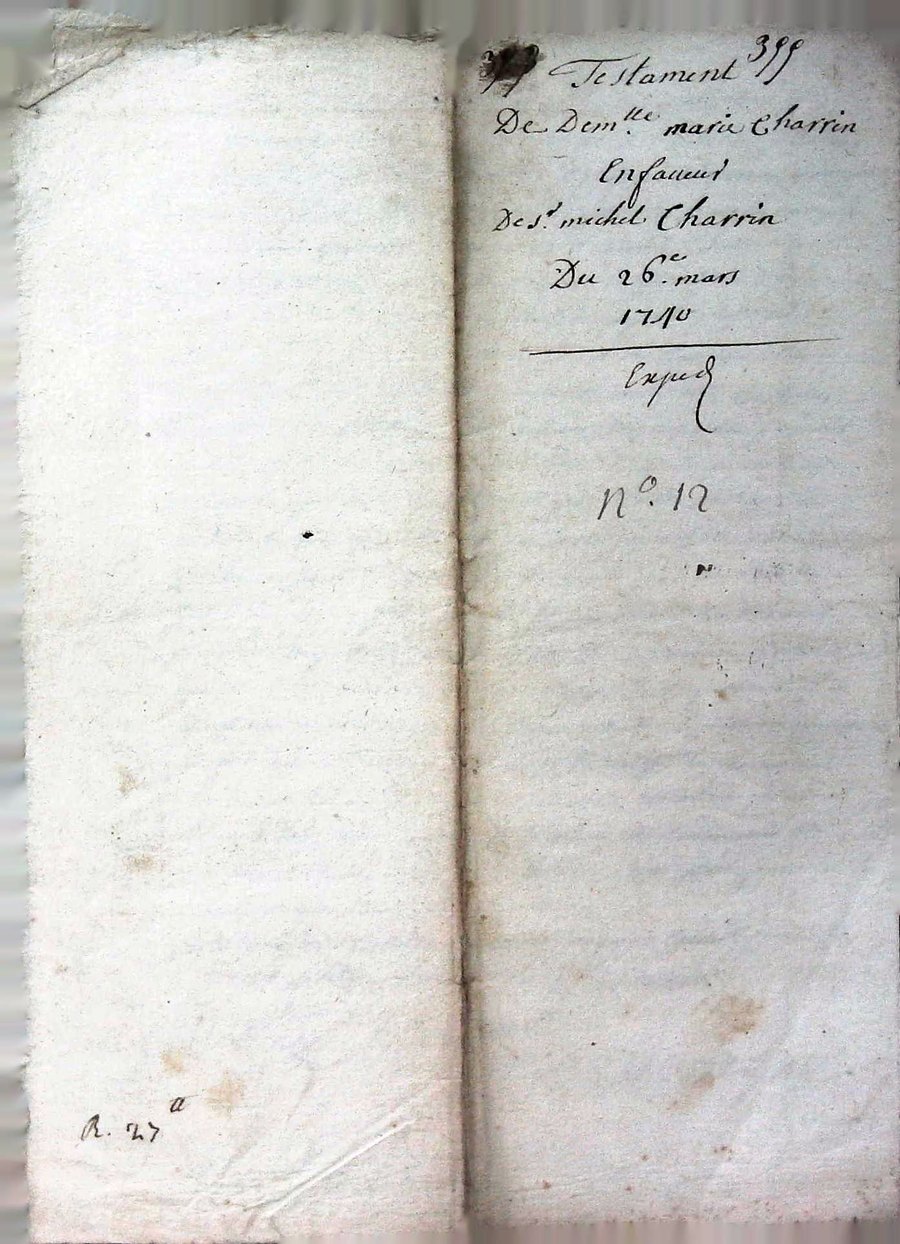 Testament 399
De Dem.lle marie Charrin
Enfaveur
De s.r michel Charrin
Du 26.e mars
1740
Exped
n.o 12
R. 27 tt